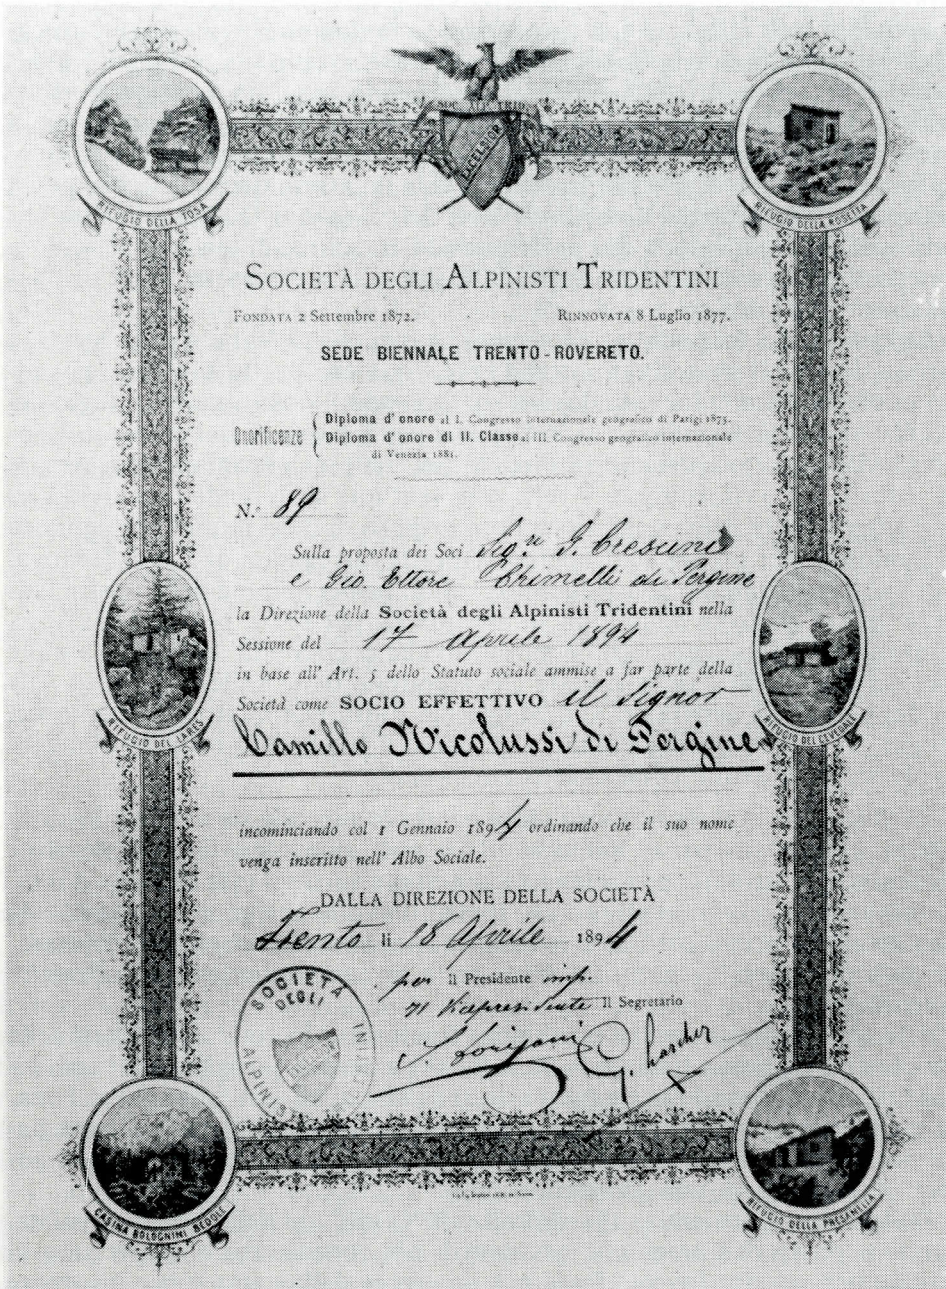 SOC. ALP. TRID.
EXCELSIOR
RIFUGIO DELLA TOSA
RIFUGIO DELLA ROSETTA
SOCIETÀ DEGLI ALPINISTI TRIDENTINI
FONDATA 2 Settembre 1872. RINNOVATA 8 Luglio 1877.
SEDE BIENNALE TRENTO-ROVERETO.
Onorificenze
Diploma d'onore al I. Congresso internazionale geografico di Parigi 1875.
Diploma d'onore di II. Classe al III. Congresso geografico internazionale
di Venezia 1881.
N.º 89
Sulla proposta dei Soci Sig.ri G. Crescini
e Gio. Ettore Chimelli di Pergine
la Direzione della Società degli Alpinisti Tridentini nella
Sessione del 17 Aprile 1894
in base all' Art. 5 dello Statuto sociale ammise a far parte della
Società come SOCIO EFFETTIVO il Signor
Camillo Nicolussi di Pergine
RIFUGIO DEL LARES
RIFUGIO DEL CEVEDALE
incominciando col 1 Gennaio 1894 ordinando che il suo nome
venga inscritto nell' Albo Sociale.
DALLA DIREZIONE DELLA SOCIETÀ
Trento li 18 Aprile 1894
per il Presidente imp.
Il Vicepresidente Il Segretario
SOCIETÀ
DEGLI
ALPINISTI
CASINA BOLOGNINI BEDOLE
RIFUGIO DELLA PRESANELLA